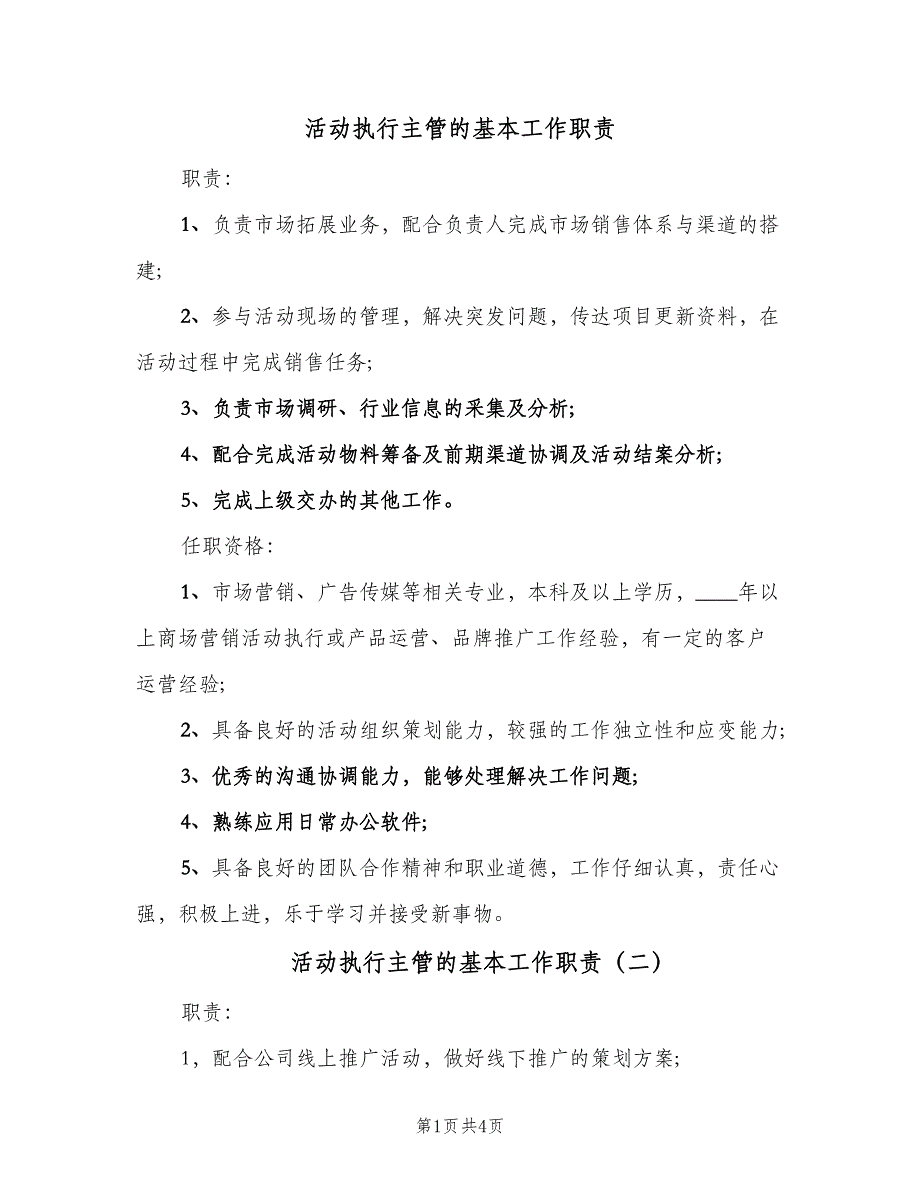 活动执行主管的基本工作职责
职责：
1、负责市场拓展业务，配合负责人完成市场销售体系与渠道的搭
建;
2、参与活动现场的管理，解决突发问题，传达项目更新资料，在
活动过程中完成销售任务;
3、负责市场调研、行业信息的采集及分析;
4、配合完成活动物料筹备及前期渠道协调及活动结案分析;
5、完成上级交办的其他工作。
任职资格：
1、市场营销、广告传媒等相关专业，本科及以上学历，____年以
上商场营销活动执行或产品运营、品牌推广工作经验，有一定的客户
运营经验;
2、具备良好的活动组织策划能力，较强的工作独立性和应变能力;
3、优秀的沟通协调能力，能够处理解决工作问题;
4、熟练应用日常办公软件;
5、具备良好的团队合作精神和职业道德，工作仔细认真，责任心
强，积极上进，乐于学习并接受新事物。
活动执行主管的基本工作职责（二）
职责：
1，配合公司线上推广活动，做好线下推广的策划方案;
第1页共4页